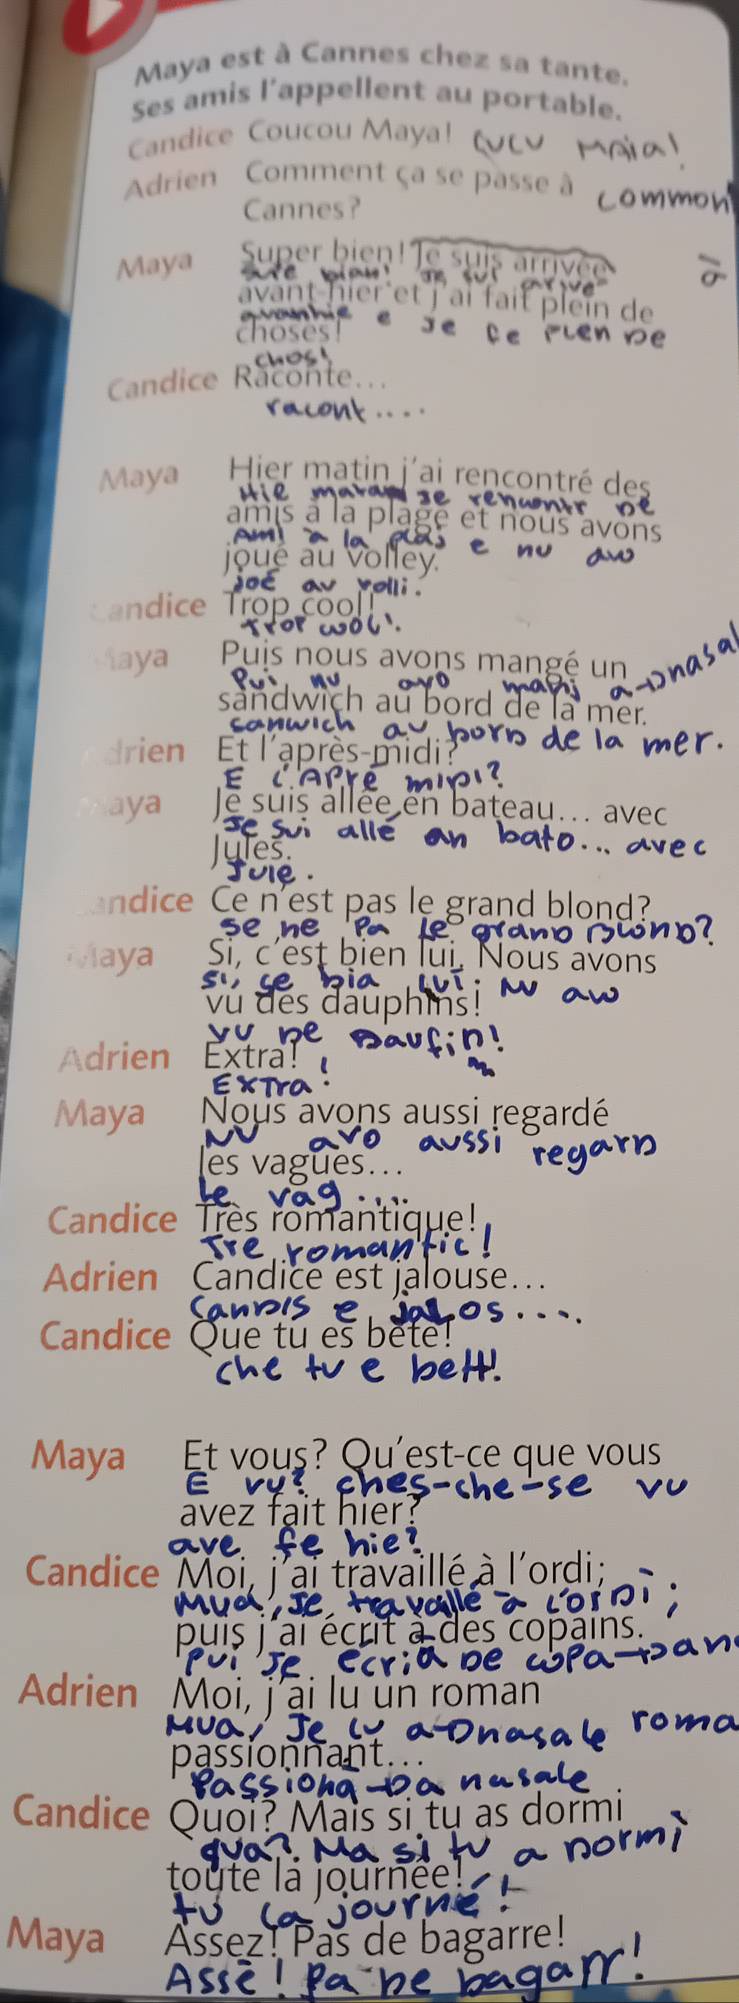 Maya est à Cannes chez sa tante.
Ses amis l'appellent au portable.
Candice Coucou Maya! CUCU MAia!
Adrien Comment ça se passe à common
Cannes?
Maya Super bien! Je suis arrivée
avant-hier et j'ai fait plein de
avanhie e Je Fe PLEN DE
choses!
chos!
Candice Raconte...
racont....
Maya Hier matin j'ai rencontré des
Hie matan je rencontr De
amis à la plage et nous avons
AMI a la plaj e nu avo
joué au volley.
joé au volli.
Candice Trop cool!
Trop cool!
Maya Puis nous avons mangé un
Pui nu avo manj a→nasal
sandwich au bord de la mer.
sanwich au bord de la mer.
Adrien Et l'après-midi?
E L'APré miDi?
Maya Je suis allée en bateau... avec
Je sui allé an bato... avec
Jules.
Jule.
Candice Ce n'est pas le grand blond?
se ne Pa Le grand BLOND?
Maya Si, c'est bien lui. Nous avons
Si, se bia lui. NU avo
vu des dauphins!
VU De Daufin!
Adrien Extra!
Extra!
Maya Nous avons aussi regardé
NU avo aussi regard
les vagues...
Le vag....
Candice Très romantique!
Tre romantic!
Adrien Candice est jalouse...
Candis e jalos....
Candice Que tu es bête!
che tu e bett!
Maya Et vous? Qu'est-ce que vous
E vu? ches-che-se vu
avez fait hier?
ave fe hie?
Candice Moi, j'ai travaillé à l'ordi;
Mua, Je travaillé a L'orDi;
puis j'ai écrit à des copains.
Pui Je ecri a De copa→an
Adrien Moi, j'ai lu un roman
Mua, Je LU a→nasale roma
passionnant...
Passiona→a nasale
Candice Quoi? Mais si tu as dormi
qua? Ma si tu a Dormi
toute la journée!
tu la journé!
Maya Assez! Pas de bagarre!
Assé! Pa De bagarr!